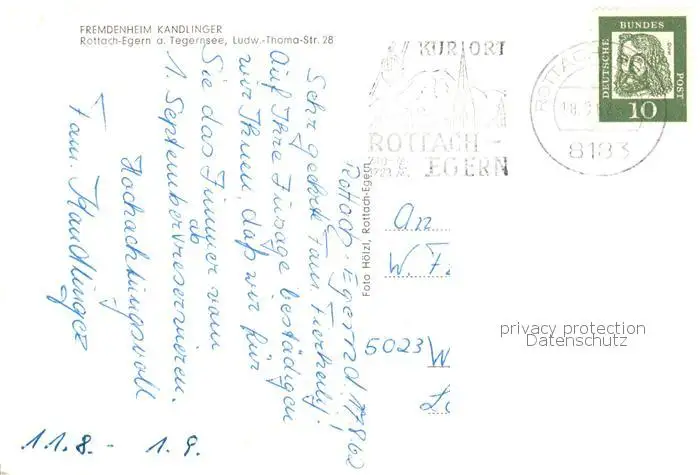 FREMDENHEIM KANDLINGER
Rottach-Egern a. Tegernsee, Ludw.-Thoma-Str. 28
Rottach-Egern, d. 17.8.62
Sehr geehrte Fam.
Auf Ihre Zusage bestädigen
wir Ihnen, daß wir für
Sie das Zimmer vom
ab
1. September reservieren.
Hochachtungsvoll
Fam. Kandlinger
11.8. - 1.9.
Foto Hölzl, Rottach-Egern
KURORT
ROTTACH-
EGERN
ROTTACH
8183
DEUTSCHE
BUNDES
POST
10
An
W.
5023 W
privacy protection
Datenschutz